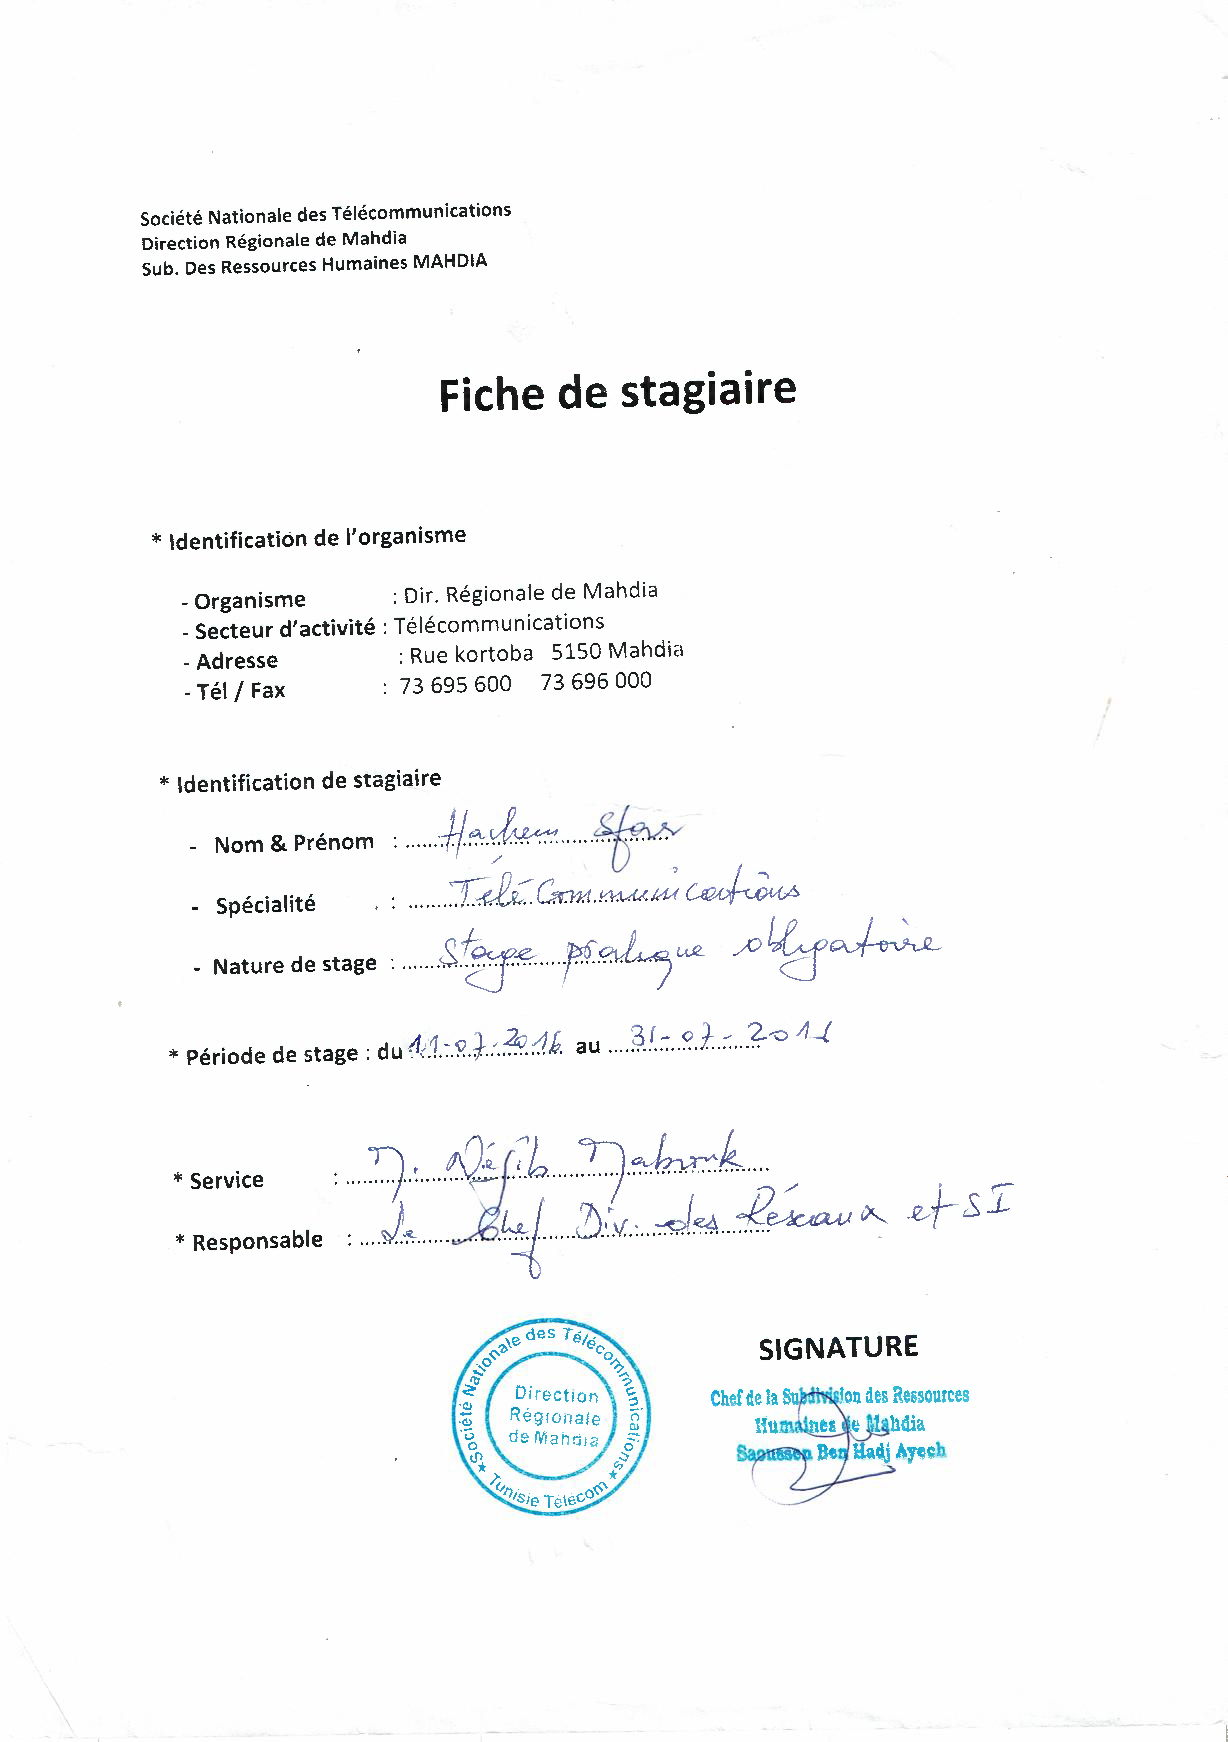 Société Nationale des Télécommunications
Direction Régionale de Mahdia
Sub. Des Ressources Humaines MAHDIA
Fiche de stagiaire
* Identification de l'organisme
- Organisme : Dir. Régionale de Mahdia
- Secteur d'activité : Télécommunications
- Adresse : Rue kortoba 5150 Mahdia
- Tél / Fax : 73 695 600 73 696 000
* Identification de stagiaire
- Nom & Prénom : Hachem Sfar
- Spécialité : Télécommunications
- Nature de stage : Stage pratique obligatoire
* Période de stage : du 11-07-2016 au 31-07-2016
* Service : M. Néjib Mabrouk
* Responsable : Le Chef Div. des Réseaux et SI
SIGNATURE
Chef de la Subdivision des Ressources
Humaines de Mahdia
Saoussen Ben Hadj Ayech
Société Nationale des Télécommunications
Direction
Régionale
de Mahdia
Tunisie Télécom